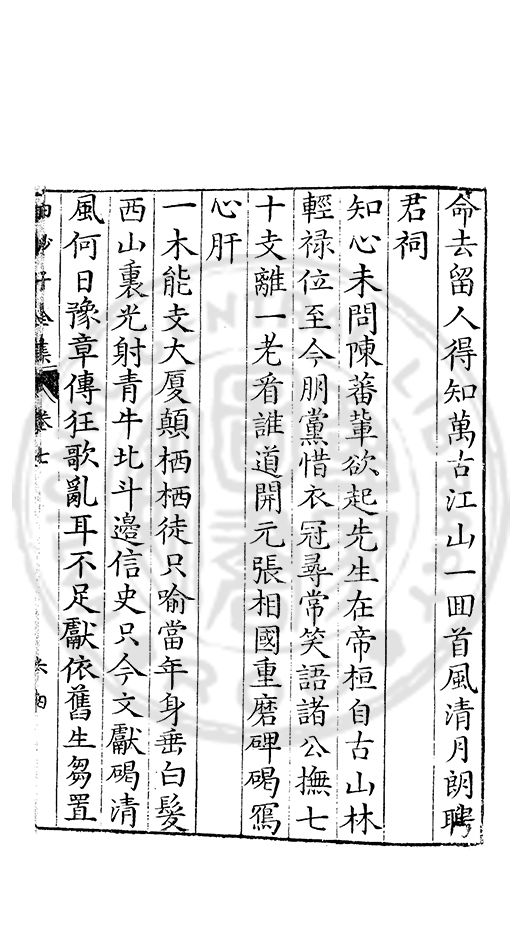 命去留人得知萬古江山一回首風清月朗聘
君祠
知心未問陳蕃輩欲起先生在帝桓自古山林
輕禄位至今朋黨惜衣冠尋常笑語諸公撫七
十支離一老看誰道開元張相國重磨碑碣寫
心肝
一木能支大厦顛栖栖徒只喻當年身垂白髮
西山裏光射青牛北斗邊信史只今文獻碣清
風何日豫章傳狂歌亂耳不足獻依舊生芻置
子全集
卷七